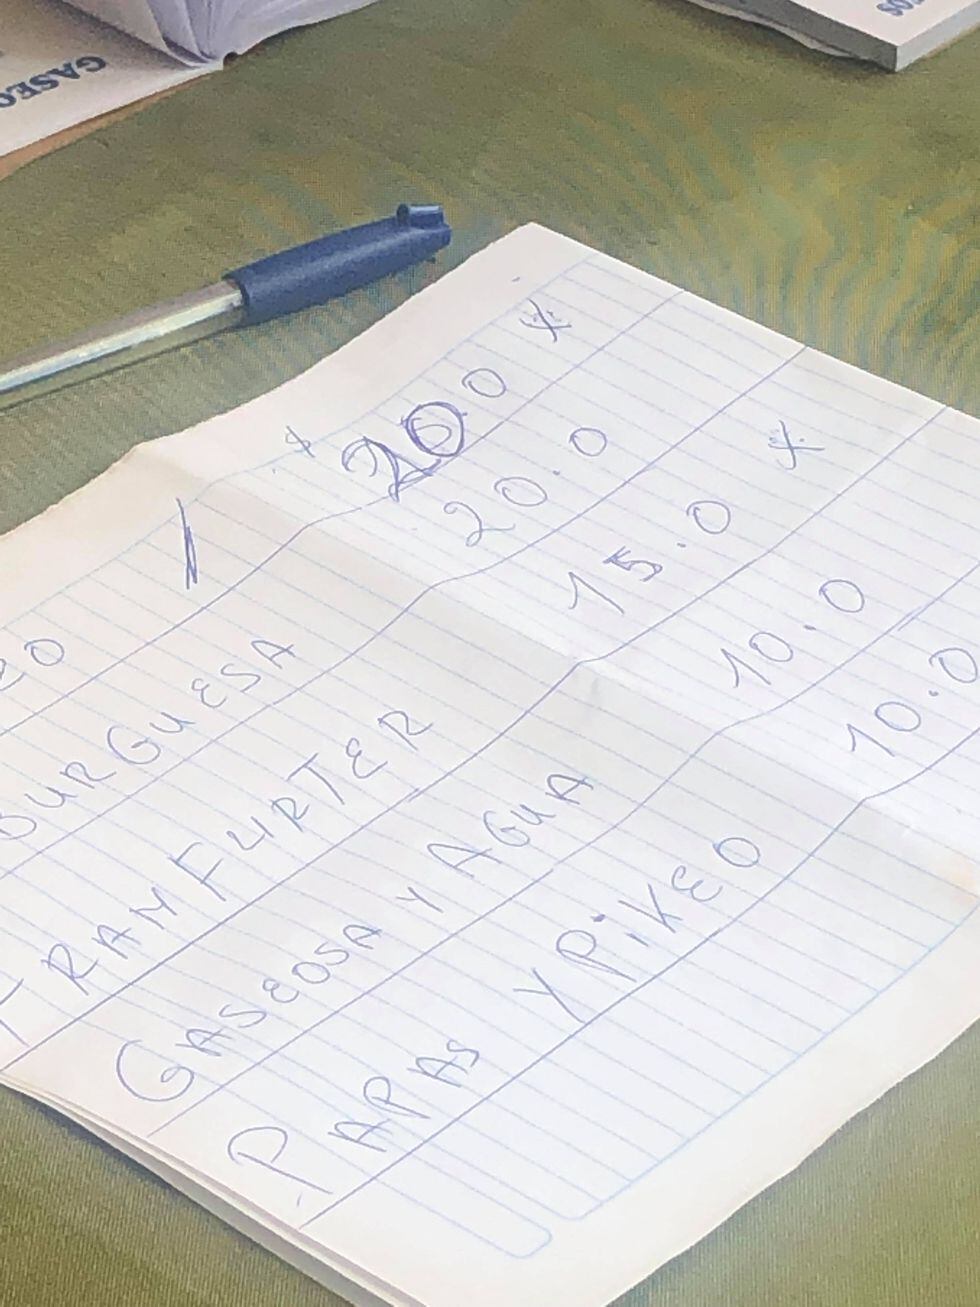 GASEO
OS
EO / $ 20.0 X
BURGUESA 20.0
FRANFURTER 15.0 X
GASEOSA Y AGUA 10.0
PAPAS Y PIKEO 10.0